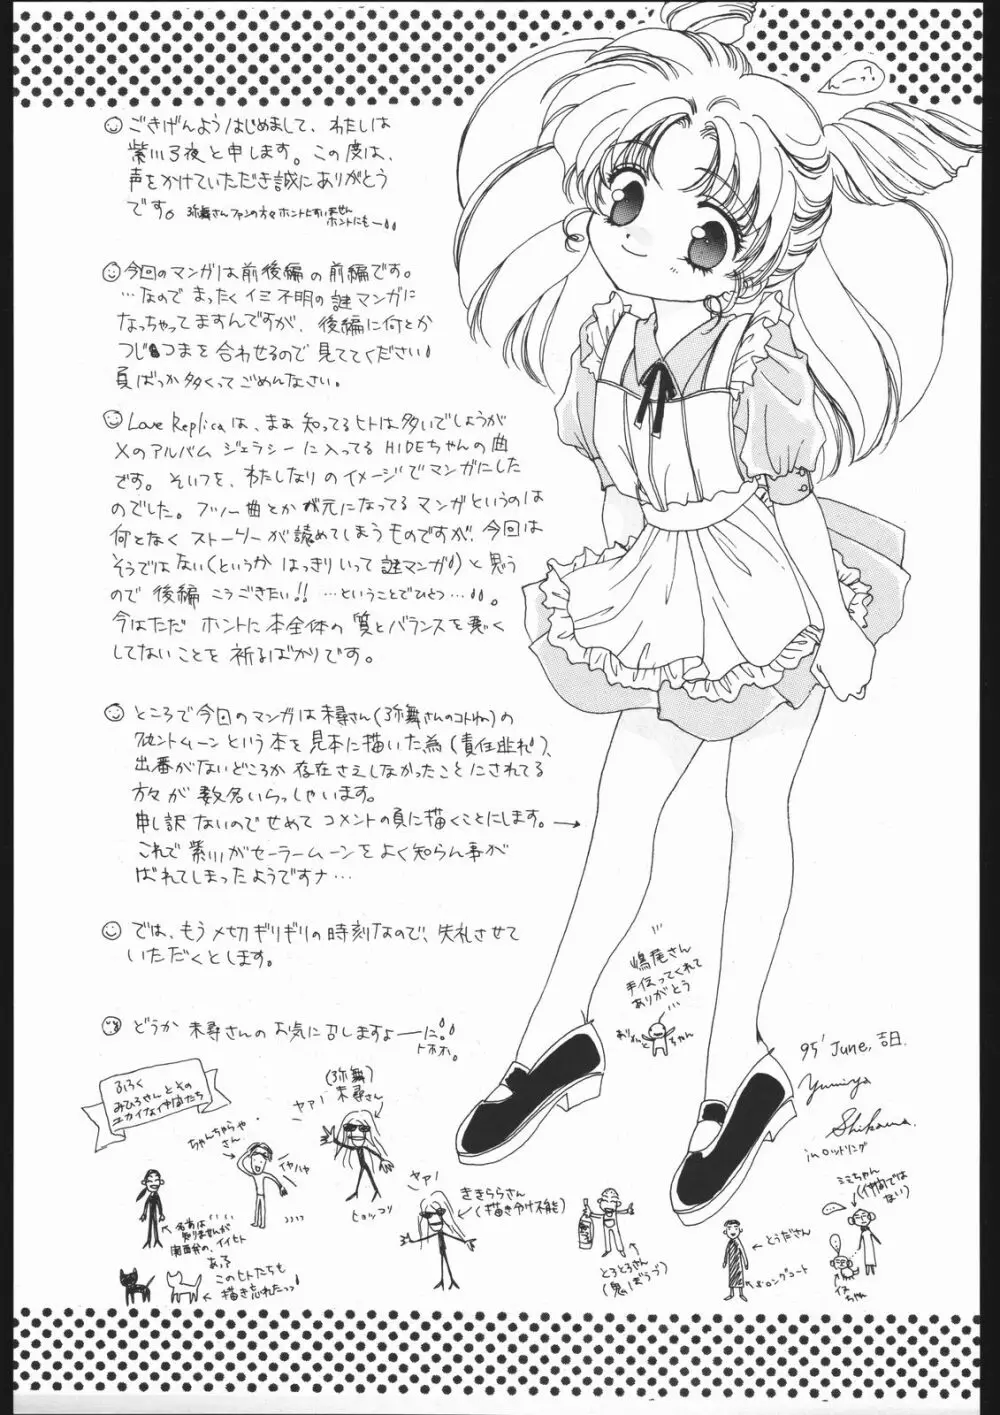 んーっ?
ごきげんようはじめまして、わたしは
紫川弓夜と申します。この度は、
声をかけていただき誠にありがとう
です。弥舞さんファンの方々ホントにすいません
ホントにも――
今回のマンガは前後編の前編です。
…なので まったくイミ不明の謎マンガに
なっちゃってますんですが、後編に何とか
つじつまを合わせるので見ててください
負ばっか多くってごめんなさい。
Love Replicaは、まぁ知ってるヒトは多いでしょうが
Xのアルバム ジェラシーに入ってるHIDEちゃんの曲
です。そいつを、わたしなりのイメージでマンガにした
のでした。フツー曲とかが元になってるマンガというのは
何となくストーリーが読めてしまうものですが、今回は
そうではない(というか はっきりいって謎マンガ)と思う
ので 後編 こうごきたい!! …ということでひとつ…。
今はただ ホントに本全体の質とバランスを悪く
してないことを祈るばかりです。
ところで今回のマンガは未尋さん(弥舞さんのコトね)の
ムーンという本を見本に描いた為(責任逃れ)、
出番がないどころか存在さえしなかったことにされてる
方々が数名いらっしゃいます。
申し訳ないのでせめてコメントの頁に描くことにします。→
これで紫川がセーラームーンをよく知らん事が
ばれてしまったようですナ…
では、もう〆切ギリギリの時刻なので、失礼させて
いただくとします。
どうか未尋さんのお気に召しますよーに
トホホ。
嶋尾さん
手伝ってくれて
ありがとう
95' June, 吉日.
Yumiya
Shikawa.
in ロッドリング
ふろく
みひろさんとその
ユカイな仲間たち
ちゃんちゃらや
さん
イヤハヤ
ヤァ!
(弥舞)
未尋さん
ヒョッコリ
ヤァ!
きききららさん
(描き分け不能)
名前は
知りませんが
関西弁の、イイヒト
あ、
このヒトたちも
描き忘れたっっ
とろとろさん
(鬼ぼうず)
とうださん
ロングコート
ミミちゃん
(仲間では
ない)